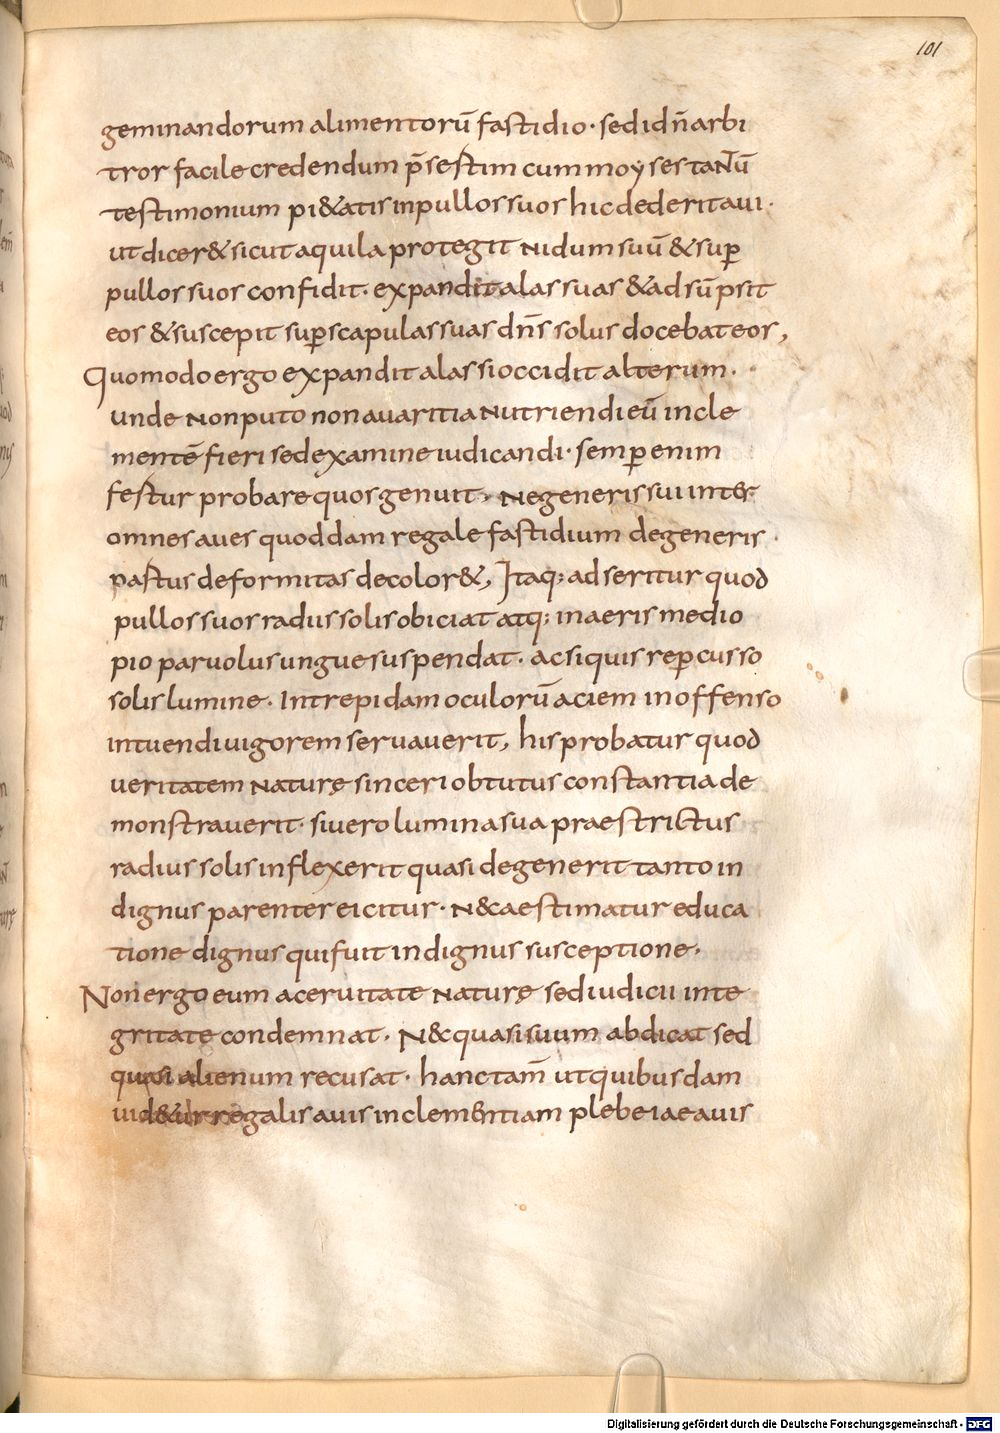 101
geminandorum alimentorū fastidio· sed id n̄ arbi
tror facile credendum p̄sestim cum moyses tantū
testimonium pi&atis in pullos suos hic dederit aui·
ut dicer& sicut aquila protegit nidum suū & sup̱
pullos suos confidit· expandit alas suas & adsūpsit
eos & suscepit sup̱ scapulas suas dn̄s solus docebat eos,
Quomodo ergo expandit alas si occidit alterum·
unde non puto non auaritia nutriendi eū incle
mentē fieri sed examine iudicandi· semp̱ enim
festur probare quos genuit, ne generis sui inter
omnes aues quoddam regale fastidium degeneris·
pastus deformitas decolor&, Itaq: adseritur quod
pullos suos radiis solis obiciat atq: in aeris medio
pio paruolus ungue suspendat· ac si quis rep̱cusso
solis lumine· Intrepidam oculorū aciem inoffenso
intuendi uigorem seruauerit, his probatur quod
ueritatem naturę sinceri obtutus constantia de
monstrauerit· si uero lumina sua praestrictus
radius solis inflexerit quasi degenerit tanto in
dignus parenter eicitur· N& aestimatur educa
tione dignus qui fuit indignus susceptione·
Non ergo eum aceruitate naturę sed iudicii inte
gritate condemnat· N& quasi suum abdicat sed
quasi alienum recusat· hanc tam̄ ut quibusdam
uid&ur regalis auis inclementiam plebeiae auis
Digitalisierung gefördert durch die Deutsche Forschungsgemeinschaft - DFG